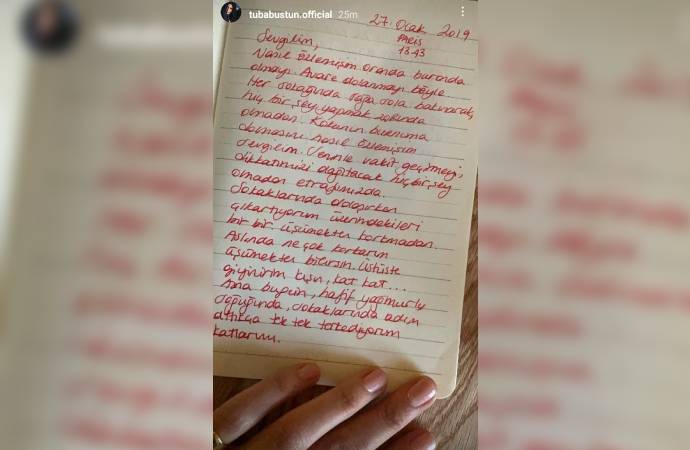 tubabustun.official 25m
27. Ocak 2019
Paris
13.43
Sevgilim,
Nasıl özlemişim oranda buranda
olmayı. Avare dolanmayı böyle
Her sokağında sağa sola bakınarak,
hiç bir şey yapmak zorunda
olmadan. Kokunun burnuma
dolmasını nasıl özlemişim
sevgilim. Seninle vakit geçirmeyi,
dikkatimizi dağıtacak hiç bir şey
olmadan etrafımızda.
Sokaklarında dolaşırken
çıkartıyorum üzerimdekileri
bir bir üşümekten korkmadan.
Aslında ne çok korkarım
üşümekten bilirsin. Üstüste
giyinirim kışın, kat kat...
Ama bugün, hafif yağmurlu
soğuğunda, sokaklarında adım
attıkça tek tek terkediyorum
katlarımı.